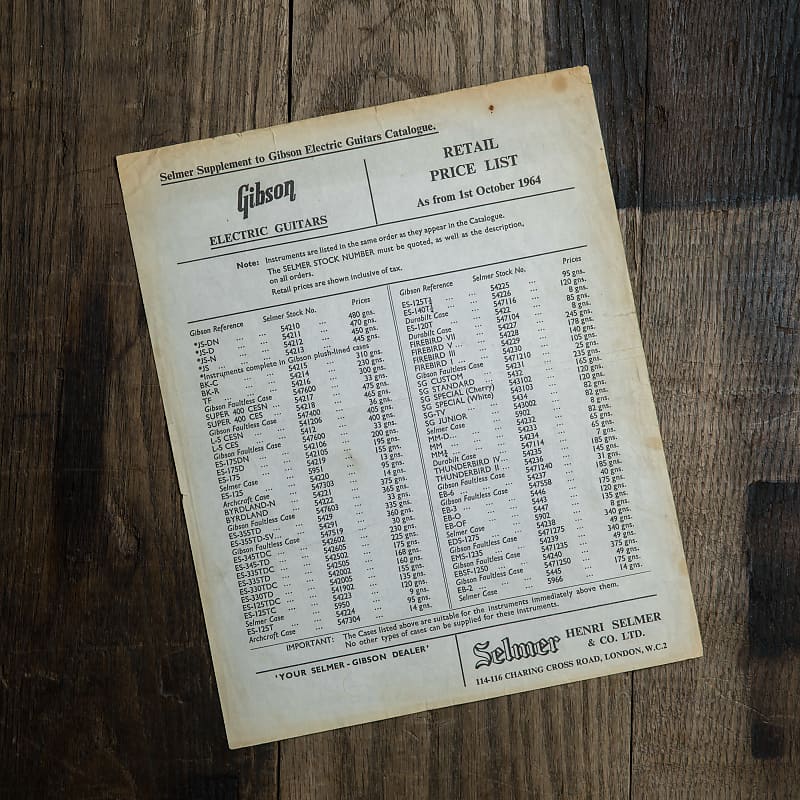 Selmer Supplement to Gibson Electric Guitars Catalogue.
Gibson
ELECTRIC GUITARS
RETAIL
PRICE LIST
As from 1st October 1964
Note: Instruments are listed in the same order as they appear in the Catalogue.
The SELMER STOCK NUMBER must be quoted, as well as the description,
on all orders.
Retail prices are shown inclusive of tax.
Gibson Reference Selmer Stock No. Prices
*JS-DN ... ... 54210 ... 480 gns.
*JS-D ... ... 54211 ... 470 gns.
*JS-N ... ... 54212 ... 450 gns.
*JS ... ... 54213 ... 445 gns.
*Instruments complete in Gibson plush-lined cases
BK-C ... ... 54215 ... 310 gns.
BK-R ... ... 54214 ... 230 gns.
TF ... ... 54216 ... 300 gns.
Gibson Faultless Case 547600 ... 33 gns.
SUPER 400 CESN ... 54217 ... 475 gns.
SUPER 400 CES ... 54218 ... 465 gns.
Gibson Faultless Case 547400 ... 36 gns.
L-5 CESN ... 541206 ... 405 gns.
L-5 CES ... 5412 ... 400 gns.
Gibson Faultless Case 547600 ... 33 gns.
ES-175DN ... 542106 ... 200 gns.
ES-175D ... 542105 ... 195 gns.
ES-175 ... 54219 ... 155 gns.
Selmer Case ... 5951 ... 13 gns.
ES-125 ... 54220 ... 95 gns.
Archcraft Case ... 547303 ... 14 gns.
BYRDLAND-N ... 54221 ... 375 gns.
BYRDLAND ... 54222 ... 365 gns.
Gibson Faultless Case 547603 ... 33 gns.
ES-355TD ... 5429 ... 335 gns.
ES-355TD-SV ... 54291 ... 360 gns.
Gibson Faultless Case 547519 ... 30 gns.
ES-345TDC ... 542602 ... 230 gns.
ES-345-TD ... 542605 ... 225 gns.
ES-335TDC ... 542502 ... 175 gns.
ES-335TD ... 542505 ... 168 gns.
ES-330TDC ... 542002 ... 160 gns.
ES-330TD ... 542005 ... 155 gns.
ES-125TDC ... 541902 ... 135 gns.
ES-125TC ... 54223 ... 120 gns.
Selmer Case ... 5950 ... 9 gns.
ES-125T ... 54224 ... 95 gns.
Archcraft Case ... 547304 ... 14 gns.
Gibson Reference Selmer Stock No. Prices
ES-125T¾ ... 54225 ... 95 gns.
ES-140T¾ ... 54226 ... 120 gns.
Durabilt Case ... 547116 ... 8 gns.
ES-120T ... 5422 ... 85 gns.
Durabilt Case ... 547104 ... 8 gns.
FIREBIRD VII ... 54227 ... 245 gns.
FIREBIRD V ... 54228 ... 178 gns.
FIREBIRD III ... 54229 ... 140 gns.
FIREBIRD I ... 54230 ... 105 gns.
Gibson Faultless Case 5471210 ... 25 gns.
SG CUSTOM ... 54231 ... 235 gns.
SG STANDARD ... 5432 ... 165 gns.
SG SPECIAL (Cherry) 543102 ... 120 gns.
SG SPECIAL (White) 543103 ... 120 gns.
SG-TV ... 5434 ... 82 gns.
SG JUNIOR ... 543002 ... 82 gns.
Selmer Case ... 5902 ... 8 gns.
MM-D ... 54232 ... 82 gns.
MM ... 54233 ... 65 gns.
MM¾ ... 54234 ... 65 gns.
Durabilt Case ... 547114 ... 7 gns.
THUNDERBIRD IV ... 54235 ... 185 gns.
THUNDERBIRD II ... 54236 ... 145 gns.
Gibson Faultless Case 5471240 ... 31 gns.
EB-6 ... 54237 ... 185 gns.
Gibson Faultless Case 547558 ... 40 gns.
EB-3 ... 5446 ... 175 gns.
EB-O ... 5443 ... 120 gns.
EB-OF ... 5447 ... 135 gns.
Selmer Case ... 5902 ... 8 gns.
EDS-1275 ... 54238 ... 340 gns.
Gibson Faultless Case 5471275 ... 49 gns.
EMS-1235 ... 54239 ... 340 gns.
Gibson Faultless Case 5471235 ... 49 gns.
EBSF-1250 ... 54240 ... 375 gns.
Gibson Faultless Case 5471250 ... 49 gns.
EB-2 ... 5445 ... 175 gns.
Selmer Case ... 5966 ... 14 gns.
IMPORTANT: The Cases listed above are suitable for the instruments immediately above them.
No other types of cases can be supplied for these instruments.
'YOUR SELMER - GIBSON DEALER'
Selmer HENRI SELMER
& CO. LTD.
114-116 CHARING CROSS ROAD, LONDON, W.C.2